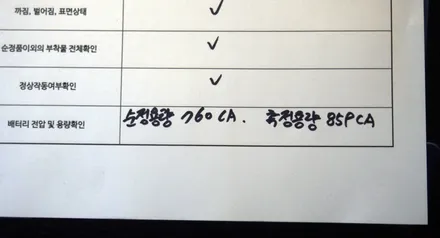 까짐, 벌어짐, 표면상태 ✓
순정품이외의 부착물 전체확인 ✓
정상작동여부확인 ✓
배터리 전압 및 용량확인 순정용량 760CA. 측정용량 85PCA